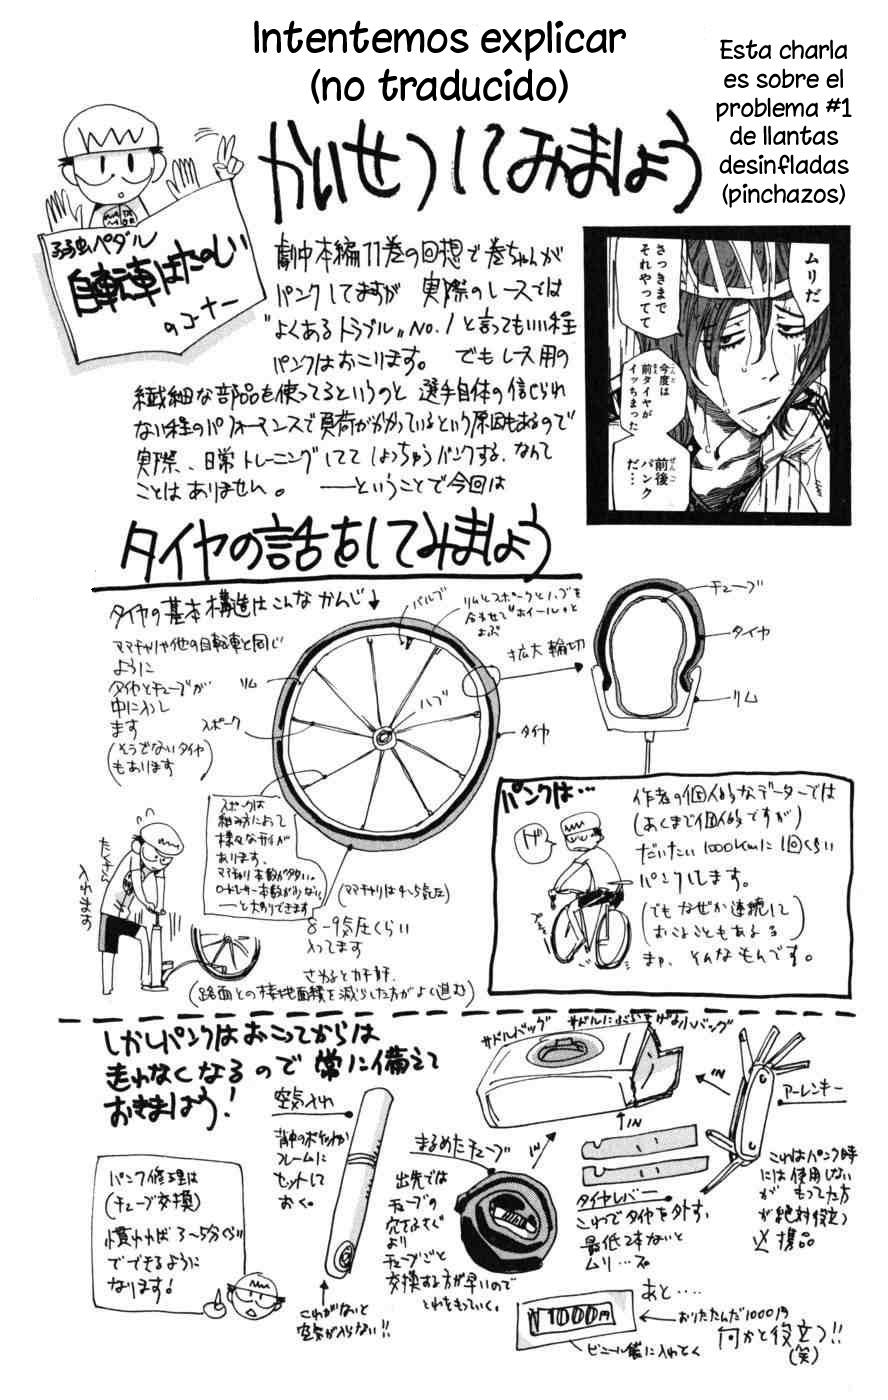 Intentemos explicar
(no traducido)
Esta charla
es sobre el
problema #1
de llantas
desinfladas
(pinchazos)
かいせつしてみましょう
弱虫ペダル
自転車はたのしい
のコーナー
劇中本編11巻の回想で巻ちゃんが
パンクしてますが 実際のレースでは
"よくあるトラブル"NO.1と言ってもいい程
パンクはおこります。 でもレース用の
繊細な部品を使ってるというのと 選手自体の信じられ
ない程のパフォーマンスで負荷がかかっているという原因もあるので
実際、日常トレーニングしてて しょっちゅうパンクする、なんて
ことはありません。 ——ということで今回は
ムリだ
さっきまで
それやってて
今度は
前タイヤが
イッちまった
前後
パンク
だ…
タイヤの話をしてみましょう
タイヤの基本構造はこんなかんじ↓
ママチャリや他の自転車と同じ
ように
タイヤとチューブが
中に入っし
ます
(そうでないタイヤ
もあります)
リム
スポーク
バルブ
リムとスポークとハブを
合わせて"ホイール"と
よぶ
ハブ
タイヤ
拡大輪切
チューブ
タイヤ
リム
スポークは
組み方によって
様々なサイが
あります。
ママチャリ本数が多い。
ロードレーサー本数が少ない。
(ママチャリは4~5気圧)
8-9気圧くらい
入ってます
さわるとカチカチ
(路面との接地面積を減らした方がよく進む)
パンクは…
ゲ
作者の個人的なデーターでは
(あくまで個人的ですが)
だいたい1000kmに1回くらい
パンクします。
(でもなぜか連続して
おこることもあるる
まぁ、そんなもんです。
しかしパンクはおこってからは
走れなくなるので 常に備えて
おきましょう!
パンク修理は
(チューブ交換)
慣れれば3~5分くらい
でできるように
なります!
空気入れ
背中のポケットか
フレームに
セットして
おく。
これがないと
空気が入らない!!
まるめたチューブ
出先では
チューブの
穴をふさぐ
より
チューブごと
交換する方が早いので
これをもっていく。
サドルバッグ
サドルにぶらさげる小バッグ
IN
IN
IN
タイヤレバー
これでタイヤを外す。
最低2本ないと
ムリ…プ
アーレンキー
これはパンク時
には使用しない
が もってた方
が絶対役立つ
必携品
あと‥‥
¥1000円
おりたたんだ1000円
何かと役立つ!!
(笑)
ビニール袋に入れとく